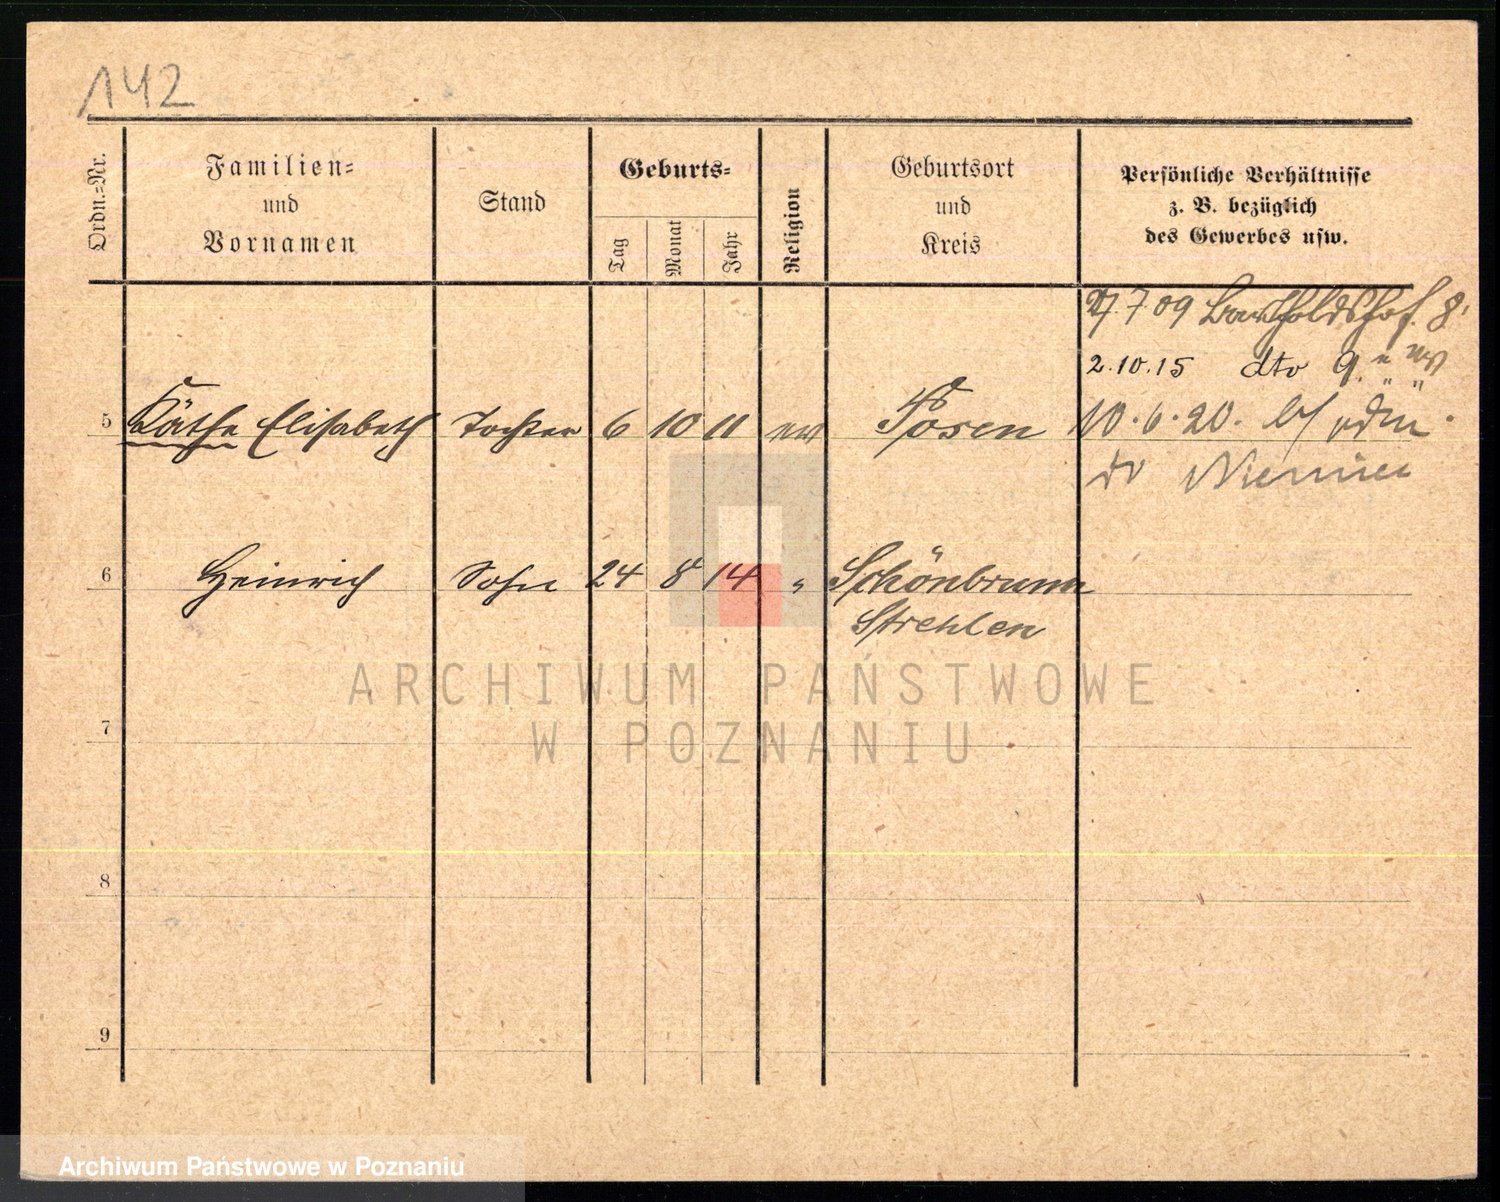 142
Ordn.=Nr.
Familien=
und
Vornamen
Stand
Geburts=
Tag
Monat
Jahr
Religion
Geburtsort
und
Kreis
Persönliche Verhältnisse
z. B. bezüglich
des Gewerbes usw.
7.09 Bartholdshof. 8.
2.10.15 dto 9.
5 Käthe Elisabeth Tochter 6 10 11 ev Posen
10.6.20.
6 Heinrich Sohn 24 8 14 " Schönbrunn
Strehlen
7
8
9
ARCHIWUM PAŃSTWOWE
W POZNANIU
Archiwum Państwowe w Poznaniu